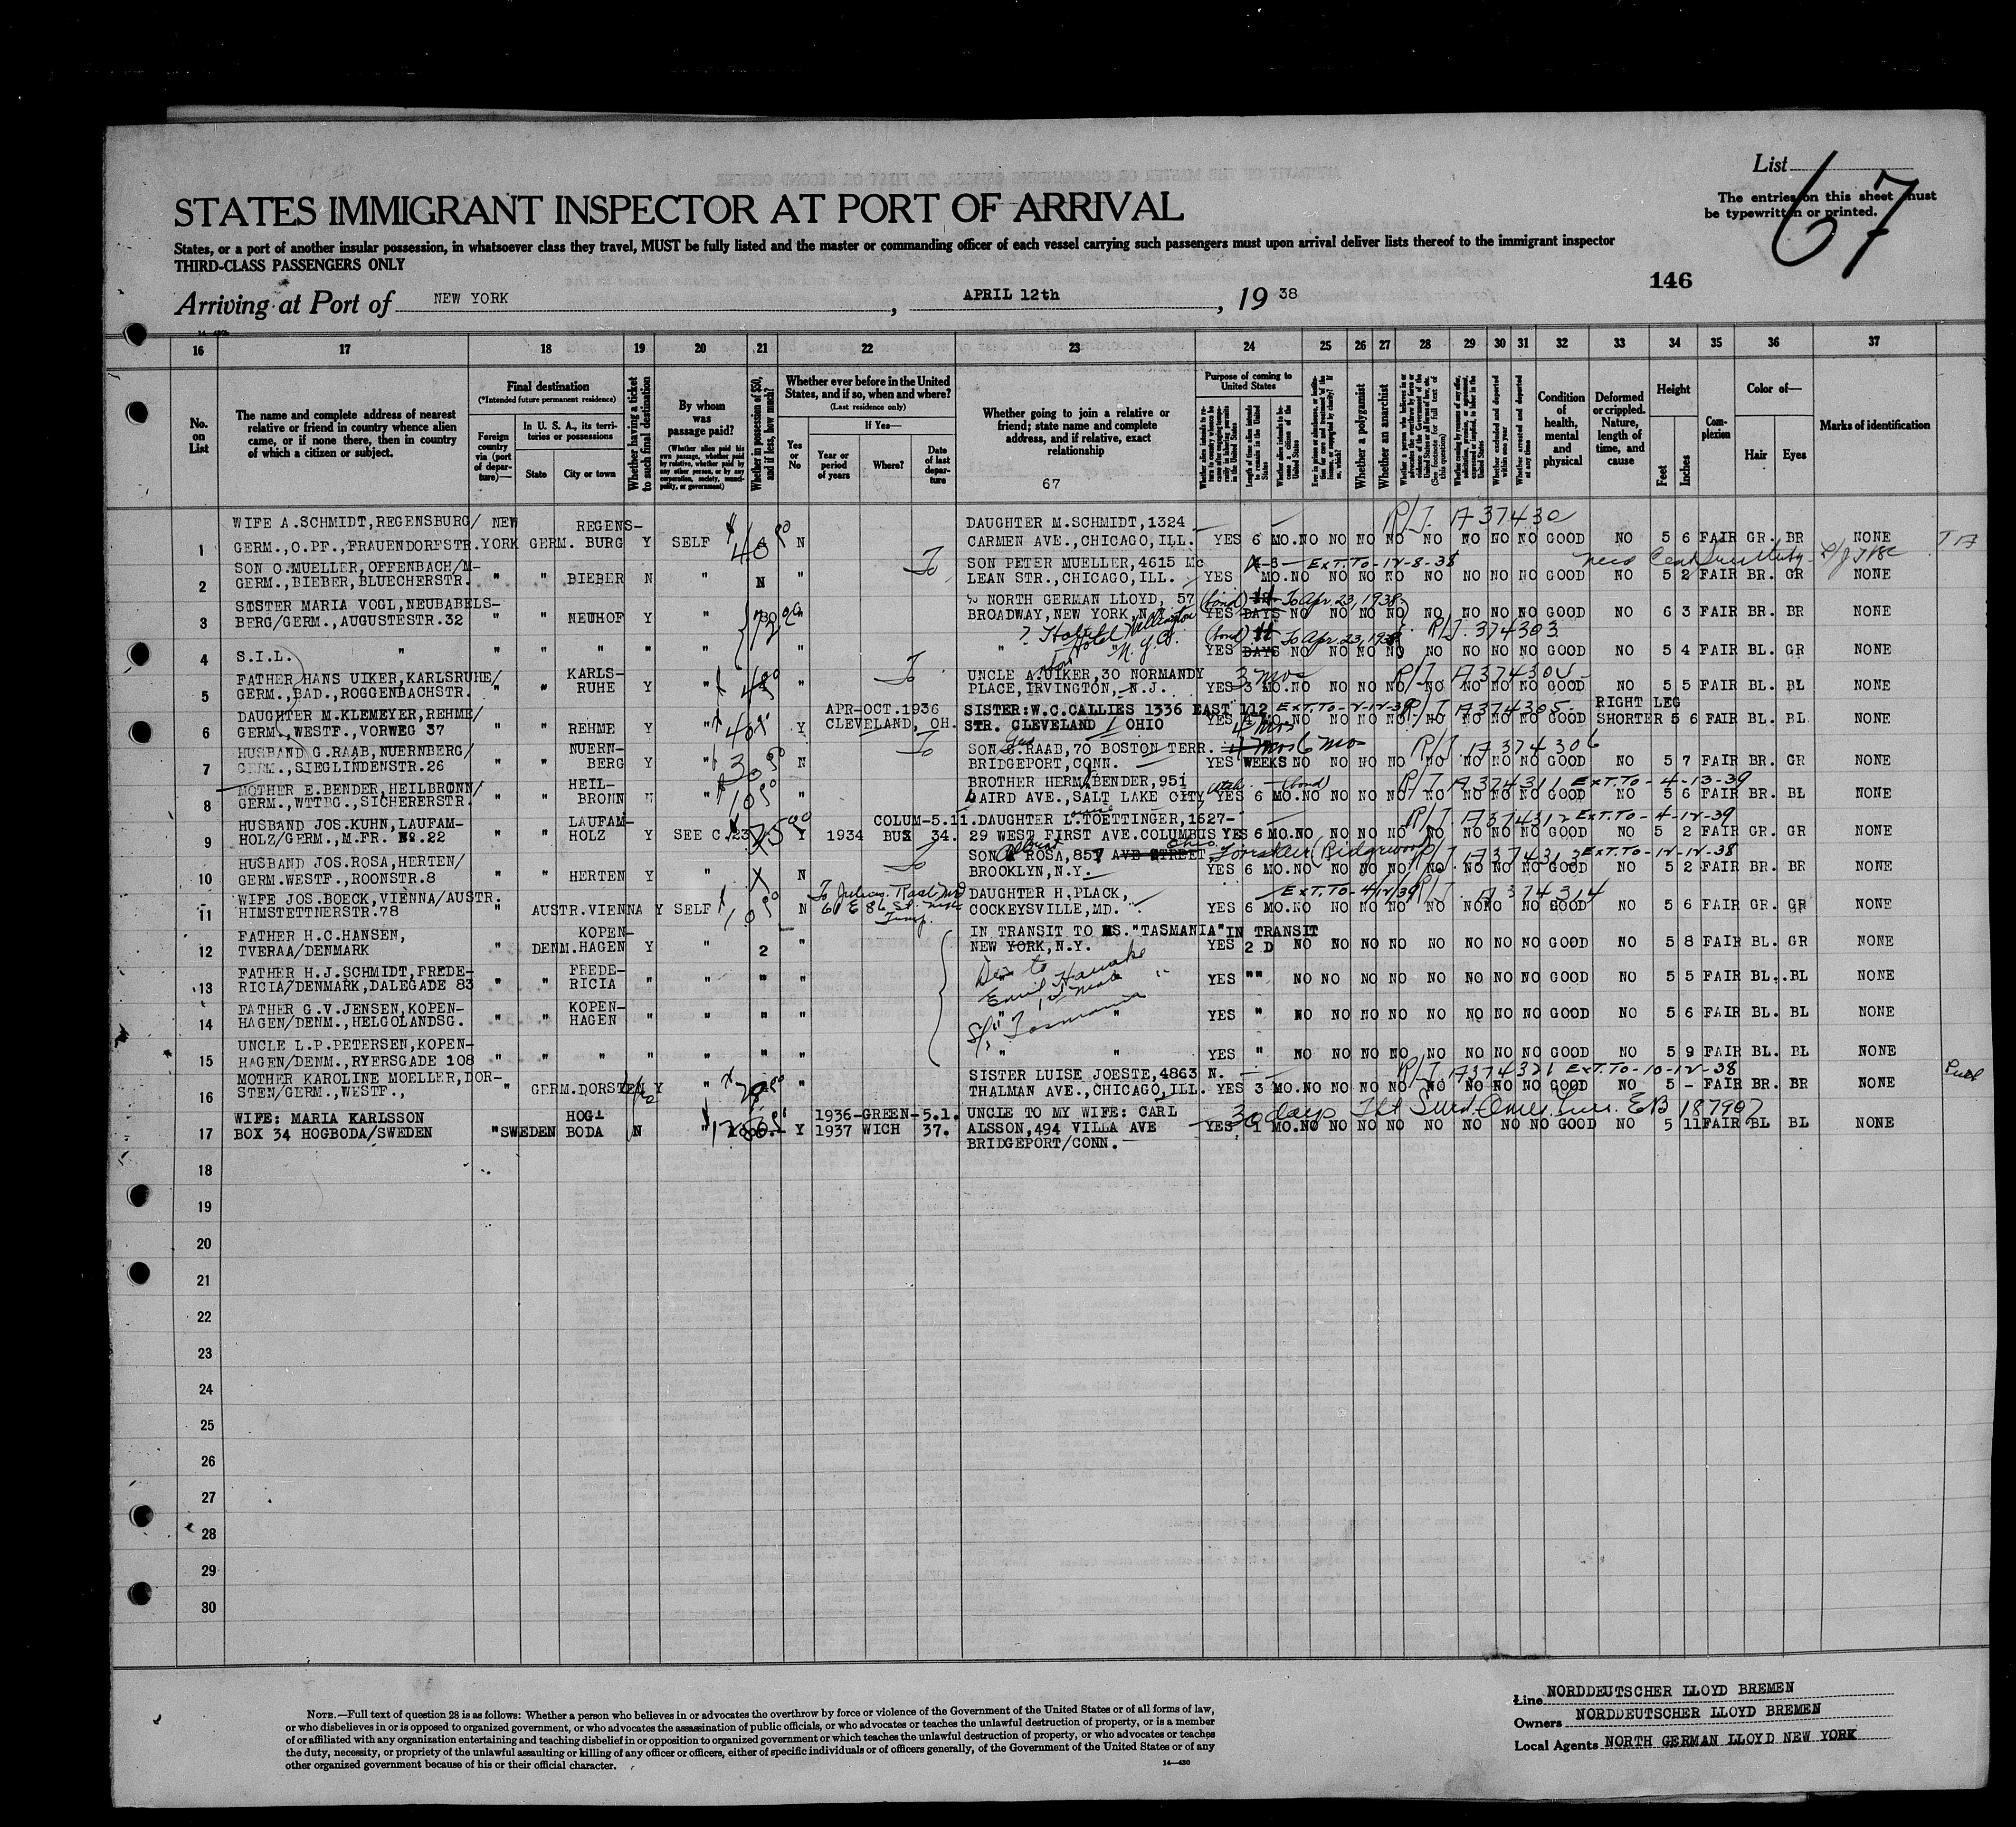 List
67
The entries on this sheet must
be typewritten or printed.
STATES IMMIGRANT INSPECTOR AT PORT OF ARRIVAL
States, or a port of another insular possession, in whatsoever class they travel, MUST be fully listed and the master or commanding officer of each vessel carrying such passengers must upon arrival deliver lists thereof to the immigrant inspector
THIRD-CLASS PASSENGERS ONLY
146
Arriving at Port of NEW YORK , APRIL 12th , 19 38
16 17 18 19 20 21 22 23 24 25 26 27 28 29 30 31 32 33 34 35 36 37
No. on List
The name and complete address of nearest relative or friend in country whence alien came, or if none there, then in country of which a citizen or subject.
Final destination
(*Intended future permanent residence)
Foreign country via (port of departure)—
In U. S. A., its territories or possessions
State City or town
Whether having a ticket to such final destination
By whom was passage paid?
(Whether alien paid his own passage, whether paid by relative, whether paid by any other person, or by any corporation, society, municipality, or government)
Whether in possession of $50, and if less, how much?
Whether ever before in the United States, and if so, when and where?
(Last residence only)
Yes or No
If Yes—
Year or period of years
Where?
Date of last departure
Whether going to join a relative or friend; state name and complete address, and if relative, exact relationship
67
Purpose of coming to United States
Whether a polygamist
Whether an anarchist
Whether excluded and deported within one year
Whether arrested and deported at any time
Condition of health, mental and physical
Deformed or crippled. Nature, length of time, and cause
Height
Feet Inches
Complexion
Color of—
Hair Eyes
Marks of identification
R/J. A37430
WIFE A.SCHMIDT,REGENSBURG/ NEW REGENS- DAUGHTER M.SCHMIDT,1324
1 GERM.,O.PF.,FRAUENDORFSTR. YORK GERM. BURG Y SELF N CARMEN AVE.,CHICAGO,ILL. YES 6 MO. NO NO NO NO NO NO NO NO GOOD NO 5 6 FAIR GR. BR NONE
SON O.MUELLER,OFFENBACH/M- SON PETER MUELLER,4615 Mc Ext.To-12-8-38
2 GERM.,BIEBER,BLUECHERSTR. " " BIEBER N " N " LEAN STR.,CHICAGO,ILL. YES MO. NO NO NO NO NO NO NO NO GOOD NO 5 2 FAIR BR. GR NONE
SISTER MARIA VOGL,NEUBABELS- % NORTH GERMAN LLOYD, 57 (bond) To Apr 23, 1938
3 BERG/GERM.,AUGUSTESTR.32 " " NEUHOF Y " " BROADWAY,NEW YORK,N.Y. YES DAYS NO NO NO NO NO NO NO NO GOOD NO 6 3 FAIR BR. BR NONE
Hotel Wellington N.Y.C. (bond) To Apr 23, 1938 R/J. 374303
4 S.I.L. " " " " " " " " " YES DAYS NO NO NO NO NO NO NO NO GOOD NO 5 4 FAIR BL. GR NONE
FATHER HANS UIKER,KARLSRUHE/ KARLS- UNCLE A.UIKER,30 NORMANDY 3 mos
5 GERM.,BAD.,ROGGENBACHSTR. " " RUHE Y " " PLACE,IRVINGTON, N.J. YES 3 MO. NO NO NO NO NO NO NO NO GOOD NO 5 5 FAIR BL. BL NONE
DAUGHTER M.KLEMEYER,REHME/ APR-OCT.1936 SISTER:W.C.CALLIES 1336 EAST 112 R/J A374305 RIGHT LEG
6 GERM.,WESTF.,VORWEG 37 " " REHME Y " Y CLEVELAND, OH. STR. CLEVELAND / OHIO YES MO. NO NO NO NO NO NO NO NO GOOD SHORTER 5 6 FAIR BL. BL NONE
HUSBAND G.RAAB,NUERNBERG/ NUERN- SON G.RAAB,70 BOSTON TERR. 6 mos R/J. A374306
7 GERM.,SIEGLINDENSTR.26 " " BERG Y " N BRIDGEPORT,CONN. YES WEEKS NO NO NO NO NO NO NO NO GOOD NO 5 7 FAIR BR. GR NONE
MOTHER E.BENDER,HEILBRONN/ HEIL- BROTHER HERM.BENDER,951 Utah (bond) R/J. A374311 Ext.To-4-13-39
8 GERM.,WTTBG.,SICHERERSTR. " " BRONN " " LAIRD AVE.,SALT LAKE CITY YES 6 MO. NO NO NO NO NO NO NO NO GOOD NO 5 6 FAIR BR. BL NONE
HUSBAND JOS.KUHN,LAUFAM- LAUFAM- COLUM-5.11. DAUGHTER L.TOETTINGER,1627- R/J A374312 Ext.To-4-12-39
9 HOLZ/GERM.,M.FR. No.22 " " HOLZ Y SEE C.23 Y 1934 BUS 34. 29 WEST FIRST AVE.COLUMBUS Ohio YES 6 MO. NO NO NO NO NO NO NO NO GOOD NO 5 2 FAIR GR. GR NONE
HUSBAND JOS.ROSA,HERTEN/ SON ROSA,857 AVE STREET (Ridgewood) R/J. A374313 Ext.To-12-12-38
10 GERM.WESTF.,ROONSTR.8 " " HERTEN Y " X N BROOKLYN,N.Y. YES 6 MO. NO NO NO NO NO NO NO NO GOOD NO 5 2 FAIR BR. BR NONE
WIFE JOS.BOECK,VIENNA/AUSTR. DAUGHTER H.PLACK, R/J. A374314
11 HIMSTETTNERSTR.78 " AUSTR.VIENNA Y SELF N COCKEYSVILLE,MD. YES 6 MO. NO NO NO NO NO NO NO NO GOOD NO 5 6 FAIR GR. GR NONE
FATHER H.C.HANSEN, KOPEN- IN TRANSIT TO MS."TASMANIA" IN TRANSIT
12 TVERAA/DENMARK " DENM. HAGEN Y " 2 " NEW YORK,N.Y. YES 2 D NO NO NO NO NO NO NO NO GOOD NO 5 8 FAIR BL. GR NONE
FATHER H.J.SCHMIDT,FREDE- FREDE-
13 RICIA/DENMARK,DALEGADE 83 " " RICIA " " " " " YES "" NO NO NO NO NO NO NO NO GOOD NO 5 5 FAIR BL. BL NONE
FATHER G.V.JENSEN,KOPEN- KOPEN-
14 HAGEN/DENM.,HELGOLANDSG. " " HAGEN " " " " " YES " NO NO NO NO NO NO NO NO GOOD NO 5 6 FAIR BL. BL NONE
UNCLE L.P.PETERSEN,KOPEN-
15 HAGEN/DENM.,RYERSGADE 108 " " " " " " " " " YES " NO NO NO NO NO NO NO NO GOOD NO 5 9 FAIR BL. BL NONE
MOTHER KAROLINE MOELLER,DOR- SISTER LUISE JOESTE,4863 N. R/J A374321 Ext.To-10-12-38
16 STEN/GERM.,WESTF., " GERM.DORSTEN Y " " THALMAN AVE.,CHICAGO,ILL. YES 3 MO. NO NO NO NO NO NO NO NO GOOD NO 5 - FAIR BR. BR NONE
WIFE: MARIA KARLSSON HOG- 1936-GREEN-5.1. UNCLE TO MY WIFE: CARL 30 days EB 187907
17 BOX 34 HOGBODA/SWEDEN " SWEDEN BODA N " Y 1937 WICH 37. ALSSON,494 VILLA AVE YES 1 MO. NO NO NO NO NO NO NO NO GOOD NO 5 11 FAIR BL BL NONE
BRIDGEPORT/CONN.
18
19
20
21
22
23
24
25
26
27
28
29
30
NOTE.—Full text of question 28 is as follows: Whether a person who believes in or advocates the overthrow by force or violence of the Government of the United States or of all forms of law,
or who disbelieves in or is opposed to organized government, or who advocates the assassination of public officials, or who advocates or teaches the unlawful destruction of property, or is a member
of or affiliated with any organization entertaining and teaching disbelief in or opposition to organized government or which teaches the unlawful destruction of property, or who advocates or teaches
the duty, necessity, or propriety of the unlawful assaulting or killing of any officer or officers, either of specific individuals or of officers generally, of the Government of the United States or of any
other organized government because of his or their official character.
14—430
Line NORDDEUTSCHER LLOYD BREMEN
Owners NORDDEUTSCHER LLOYD BREMEN
Local Agents NORTH GERMAN LLOYD NEW YORK